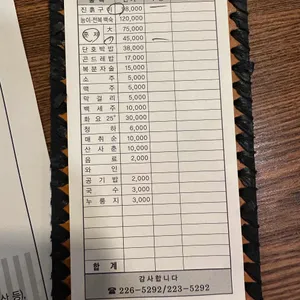 진흙구이 68,000
능이·전복백숙 120,000
훈제 大 75,000
小 45,000
단호박밥 38,000
곤드레밥 17,000
복분자술 15,000
소주 5,000
맥주 5,000
막걸리 5,000
백세주 10,000
화요 25° 30,000
청하 6,000
매취순 10,000
산사춘 10,000
음료 2,000
와인
공기밥 2,000
국수 3,000
누룽지 3,000
합계
감사합니다
☎ 226-5292/223-5292